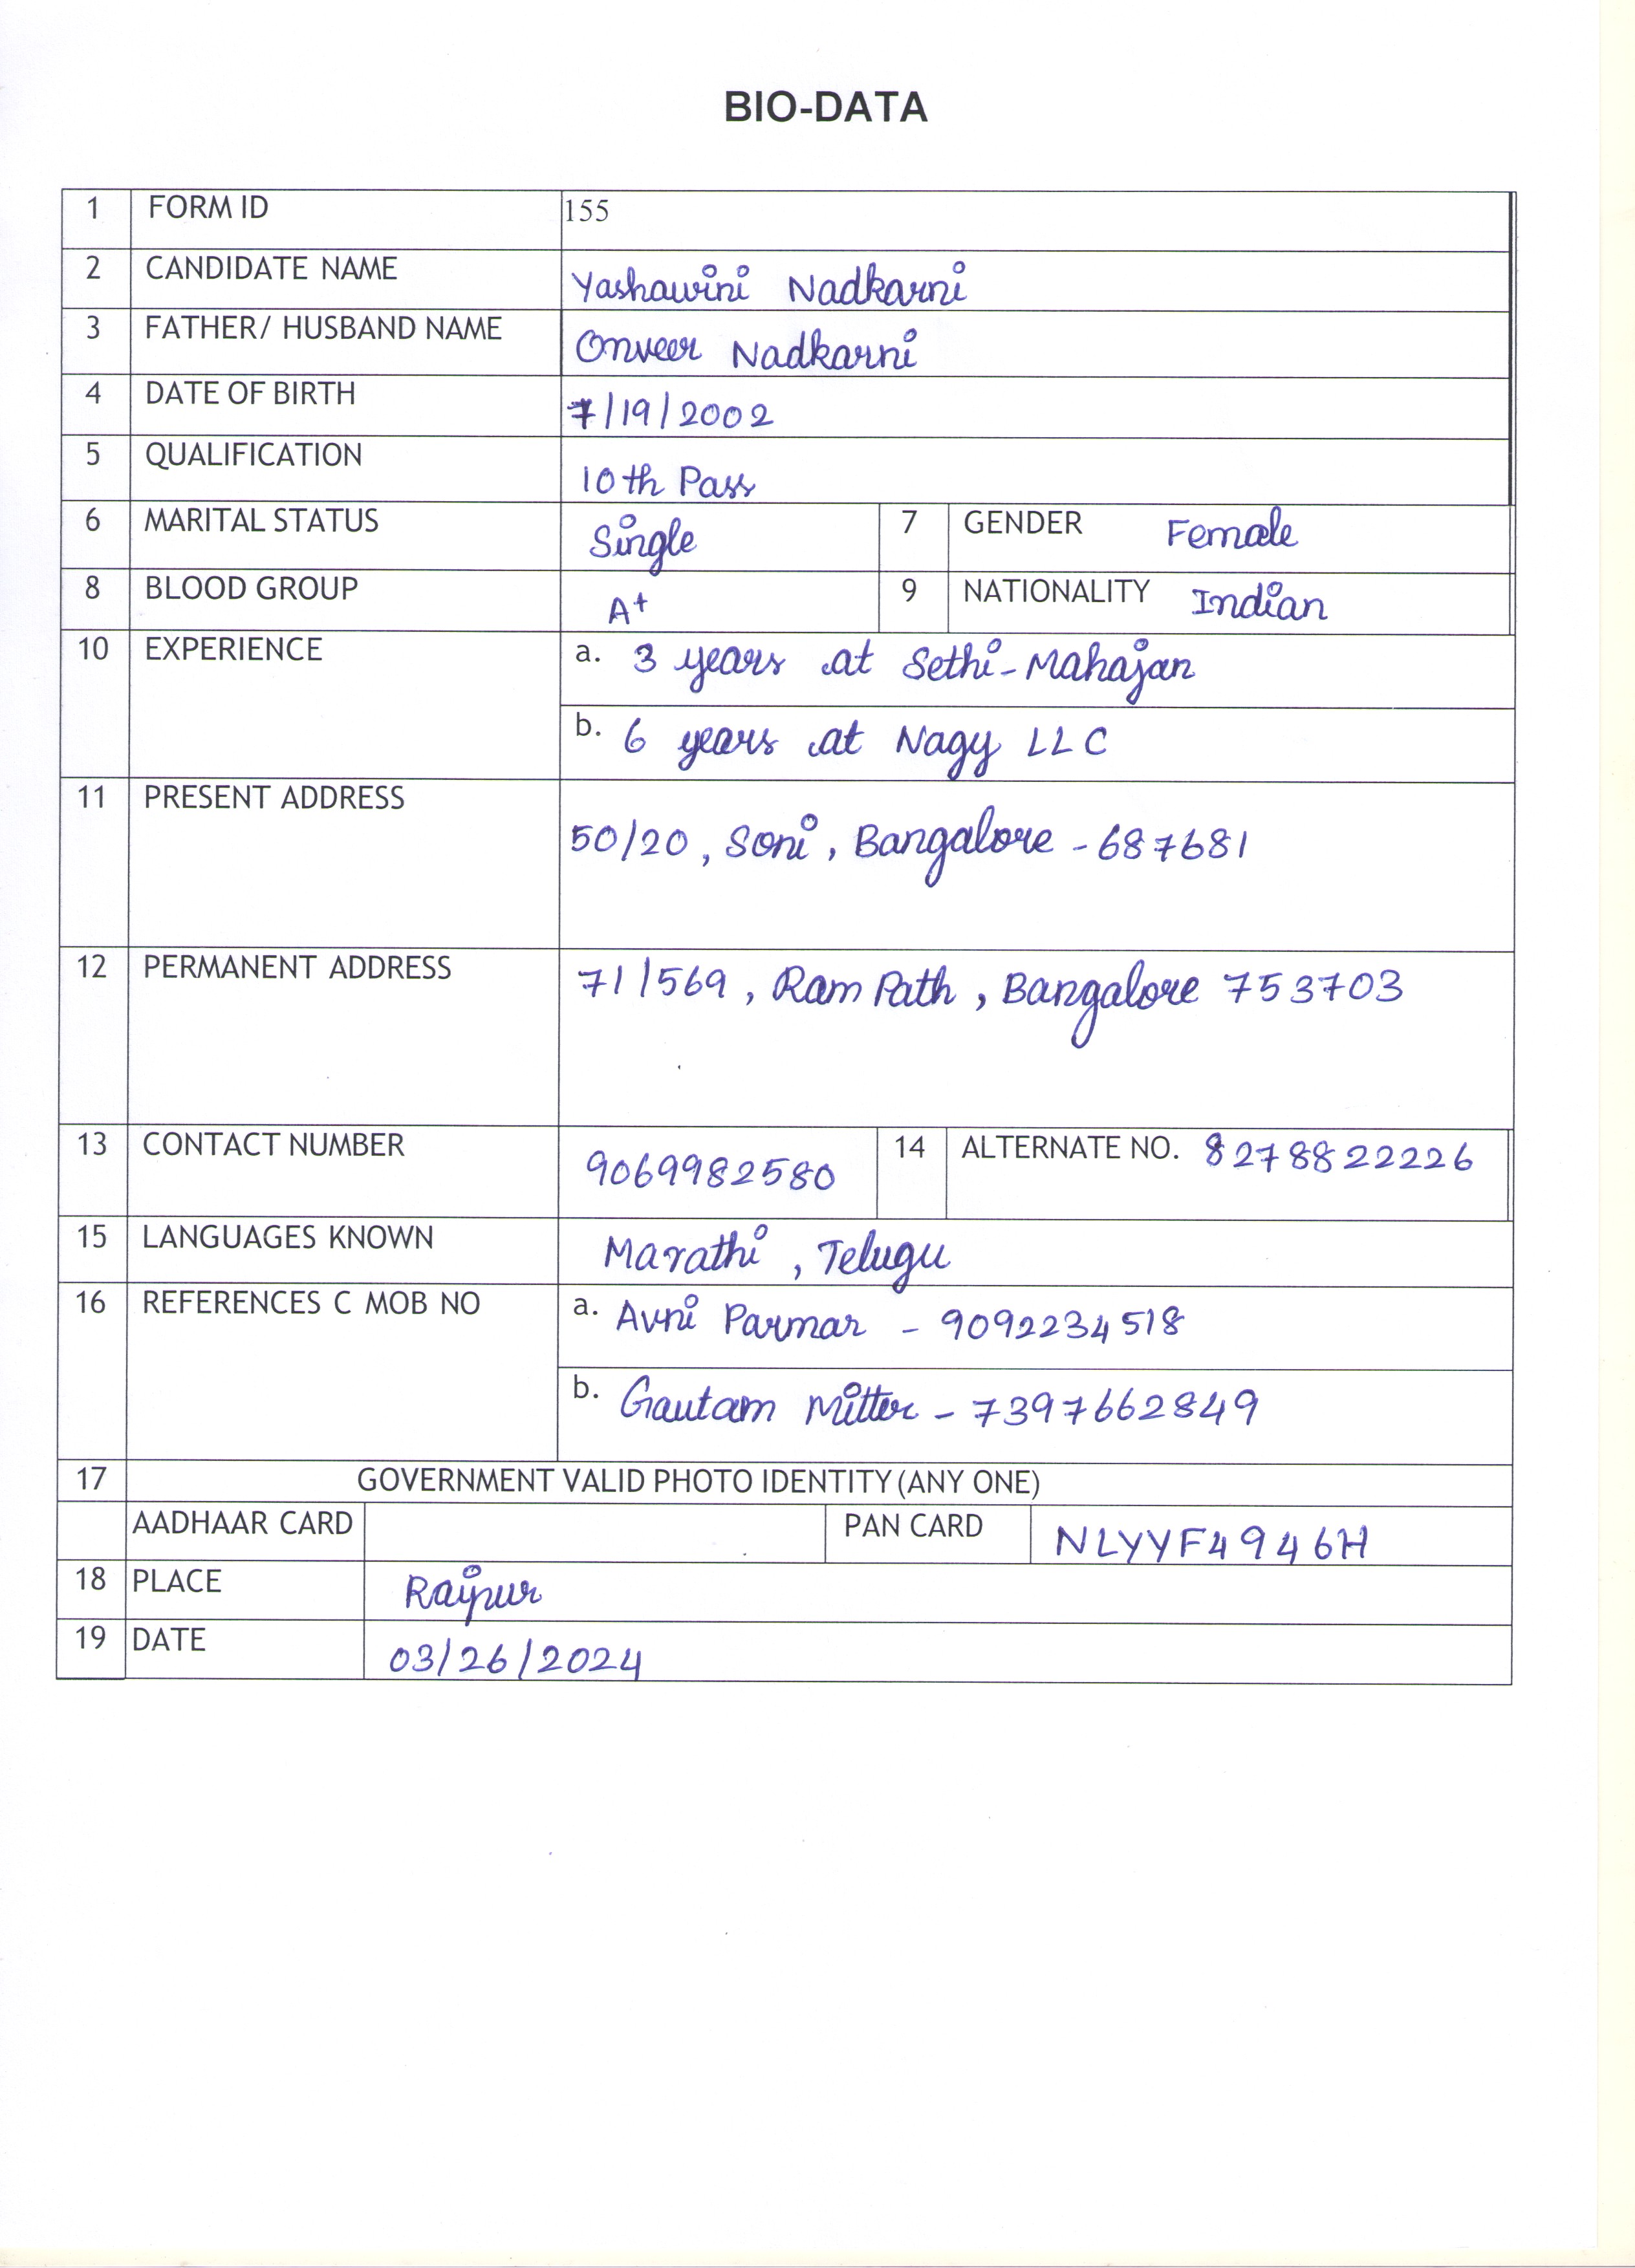 BIO-DATA
1 FORM ID 155
2 CANDIDATE NAME Yashawini Nadkarni
3 FATHER/ HUSBAND NAME Onveer Nadkarni
4 DATE OF BIRTH 7/19/2002
5 QUALIFICATION 10th Pass
6 MARITAL STATUS Single 7 GENDER Female
8 BLOOD GROUP A+ 9 NATIONALITY Indian
10 EXPERIENCE a. 3 years at Sethi-Mahajan
b. 6 years at Nagy LLC
11 PRESENT ADDRESS 50/20, Soni, Bangalore - 687681
12 PERMANENT ADDRESS 71/569, Ram Path, Bangalore 753703
13 CONTACT NUMBER 9069982580 14 ALTERNATE NO. 8278822226
15 LANGUAGES KNOWN Marathi, Telugu
16 REFERENCES C MOB NO a. Avni Parmar - 9092234518
b. Gautam Mitter - 7397662849
17 GOVERNMENT VALID PHOTO IDENTITY (ANY ONE)
AADHAAR CARD PAN CARD NLYYF4946H
18 PLACE Raipur
19 DATE 03/26/2024